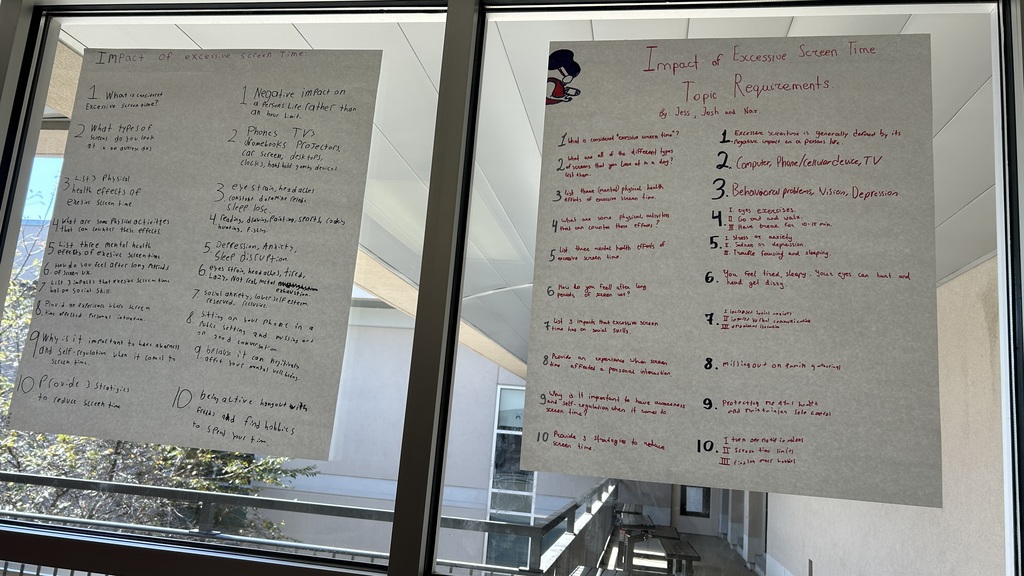 Impact of excessive screen time
1 What is considered
Excessive screen time?
2 What types of
screens do you look
at in an
3 List 3 Physical
health effects of
exesive screen time
4 What are some Physical activities
that can counter these effects
5 List three mental health
effects of exesive screen time
6 How do you feel after long periods
of screen use
7 List 3 impacts that exesive screen time
has on social skills
8 Provide an experience where screen
time affected Personal interaction
9 Why is it important to have awarness
and self-regulation when it comes to
screen time
10 Provide 3 strategies
to reduce screen time
1 Negative impact on
a persons life rather than
an hour limit.
2 Phones TV's
Chromebooks Projectors,
car screen, desktops,
clocks, hand held games devices
3 eye strain, head aches
sleep loss
4 reading, drawing, Painting, sports, cooking
hunting, fishing
5 Depression, Anxiety,
Sleep disruption
6 eyes strain, head aches, tired,
Lazy, Not real, mental
exhaustion
7 social anxiety, lower self esteem
reserved,
8 Sitting on your phone in a
Public setting and missing out
on good conversation
9 because it can positively
affect your mental well being.
10 being active hangout with
friends and find hobbies
to spend your time
Impact of Excessive Screen Time
Topic Requirements
By: Jess, Josh and Nax
1 What is considered "excessive screen time"?
2 What are all of the different types
of screens that you look at in a day?
List them.
3 List three (mental) physical health
effects of excessive screen time.
4 What are some physical activities
that can counter these effects?
5 List three mental health effects of
excessive screen time.
6 How do you feel after long
periods of screen use?
7 List 3 impacts that excessive screen
time has on social skills.
8 Provide an experience when screen
time affected a personal interaction
9 Why is it important to have awareness
and self-regulation when it comes to
screen time?
10 Provide 3 strategies to reduce
screen time.
1. Excessive screentime is generally defined by its
negative impact on a persons life.
2. Computer, Phone/cellular device, TV
3. Behavioral problems, Vision, Depression
4. I eyes exercises.
II Go out and walk.
III Have break for 10-15 min.
5. I Stress or anxiety
II Sadness or depression
III Trouble focusing and sleeping.
6. You feel tired, sleepy. Your eyes can hurt and
head get dizzy.
7. I Increased social anxiety
II communication
III
8. missing out on family gatherings
9. Protecting mental health
and maintaining self control
10. I turn off notifications
II Screen time limits
III Finding more hobbies